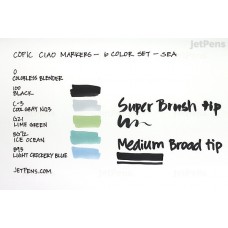 JetPens
COPIC CIAO MARKERS - 6 COLOR SET - SEA
0
COLORLESS BLENDER
100
BLACK
C-3
COOL GRAY NO.3
G21
LIME GREEN
BG72
ICE OCEAN
B93
LIGHT CROCKERY BLUE
JETPENS.COM
Super Brush tip
Medium Broad tip